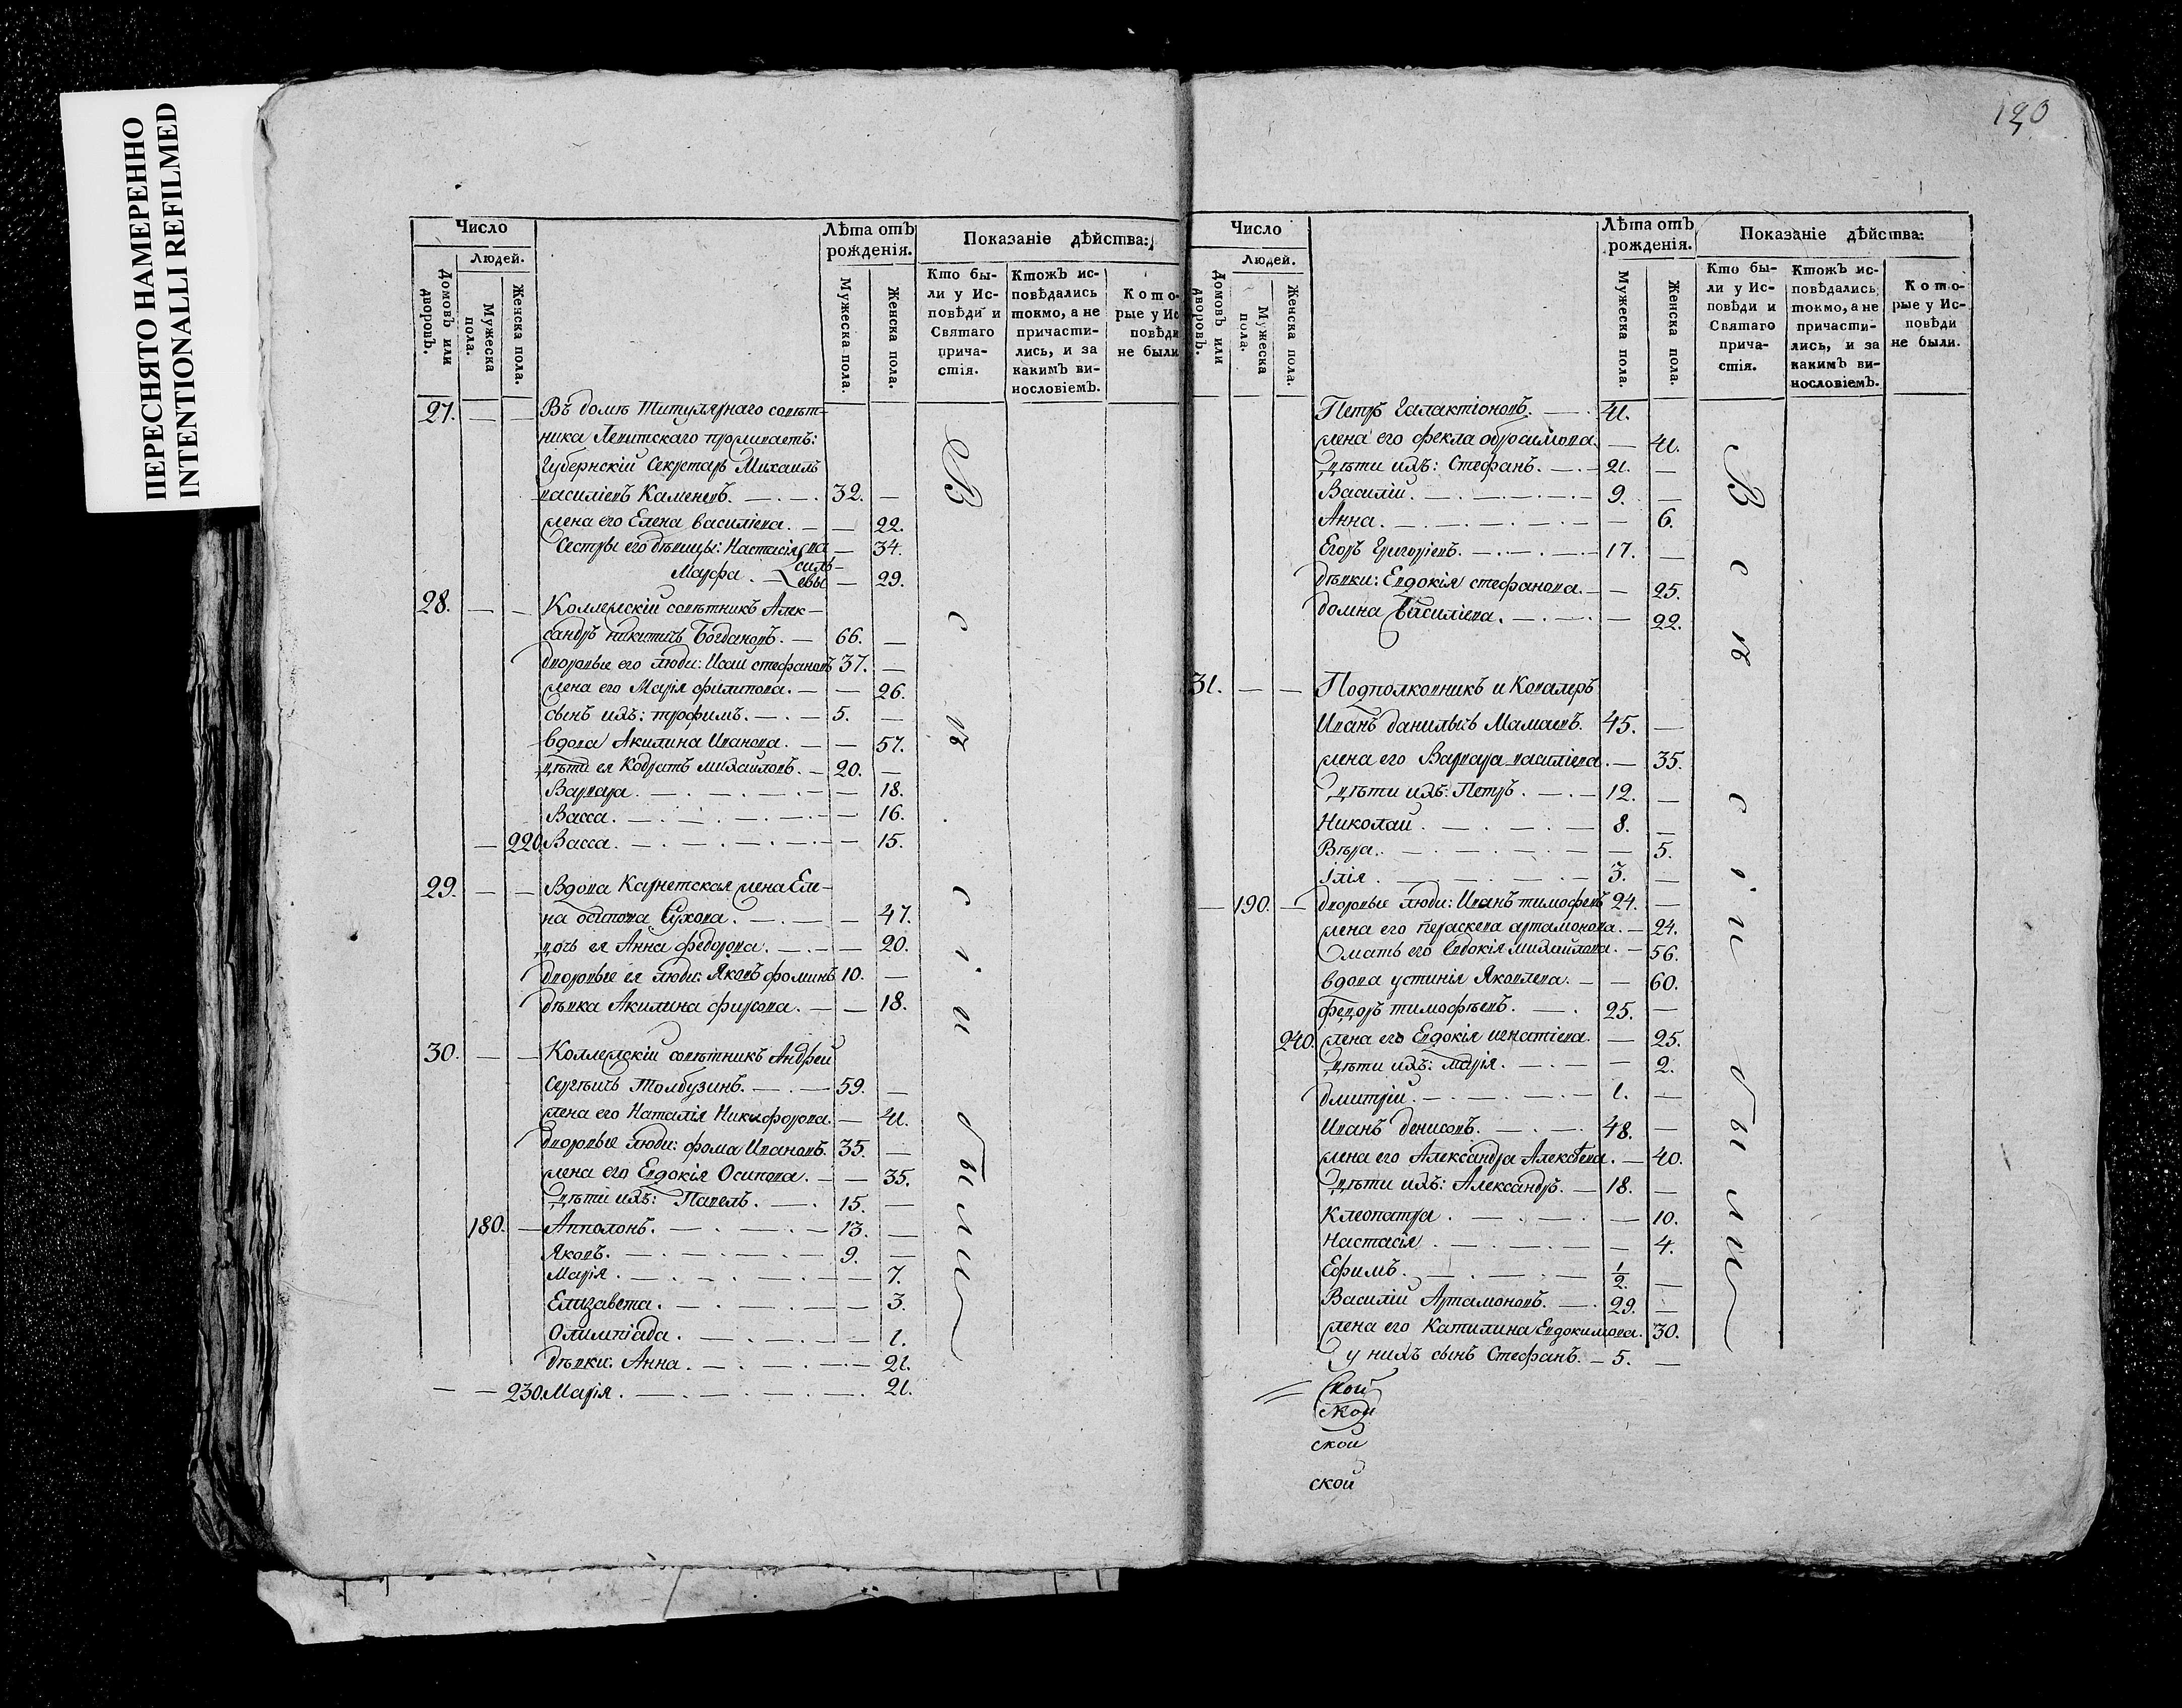 ПЕРЕСНЯТО НАМЕРЕННО
INTENTIONALLI REFILMED
Число
Людей.
Домовъ или дворовъ.
Мужеска пола.
Женска пола.
Лѣта отъ рожденія.
Мужеска пола.
Женска пола.
Показаніе дѣйства:
Кто были у Исповѣди и Святаго причастія.
Ктожъ исповѣдались токмо, а не причастились, и за какимъ винословіемъ.
Кото-
рые у Ис
повѣди
не были
27. — — Въ домѣ Титулярнаго совѣт-
ника Левитскаго проживаетъ:
Губернскій Секретарь Михаилъ
василіевъ Каменевъ. — 32. —
жена его Елена василіева. — — 22.
Сестры его дѣвицы: Настасія — 34.
Марфа. — 29.
василь-
евы
28. — — Коллежскій совѣтникъ Алек-
сандръ никитичь Богдановъ. — 66. —
дворовые его люди: Исаи стефановъ 37. —
жена его Марія филипова. — — 26.
сынъ ихъ: трофимъ. — 5. —
вдова Акилина Иванова. — — 57.
дѣти ея Кодратъ михаиловъ. — 20. —
Варвара. — — 18.
Васса. — — 16.
— 220. Васса. — — 15.
29. — — Вдова Карнетская жена Еле-
на осипова Сухова. — — 47.
дочь ея Анна федорова. — — 20.
дворовые ея люди: Яковъ фоминъ 10. —
дѣвка Акилина фирсова. — — 18.
30. — — Коллежскіи совѣтникъ Андреи
Сергѣичь Толбузинъ. — 59. —
жена его Наталія Никифорова. — 41.
дворовые люди: фома Ивановъ. 35. —
жена его Евдокія Осипова. — — 35.
дѣти ихъ: Павелъ. — 15. —
180. — Апполонъ. — 13. —
Яковъ. — 9. —
Марія. — — 7.
Елизавета. — — 3.
Олимпіада. — — 1.
дѣвки: Анна. — — 21.
— — 230. Марія. — 21.
Всѣ
сіи
были
Число
Людей.
Домовъ или дворовъ.
Мужеска пола.
Женска пола.
Лѣта отъ рожденія.
Мужеска пола.
Женска пола.
Показаніе дѣйства:
Кто были у Исповѣди и Святаго причастія.
Ктожъ исповѣдались токмо, а не причастились, и за какимъ винословіемъ.
Которые у Исповѣди не были.
Петръ Галактіоновъ. — 41.
жена его фекла — 41.
дѣти ихъ: Стефанъ. — 21. —
Василіи. — 9. —
Анна. — — 6.
Егоръ Григоріевъ. — 17. —
дѣвки: Евдокія стефанова. — — 25.
домна Василіева. — — 22.
31. — — Подполковникъ и Кавалеръ
Иванъ данилычь Мамаевъ. 45. —
жена его Варвара василіева. — 35.
дѣти ихъ: Петръ. — 12. —
Николаи. — 8. —
Вѣра. — — 5.
Ілія. — 3. —
— 190. — дворовые люди: Иванъ тимофевъ 24. —
жена его Параскева артамонова. — 24.
мать его Евдокія михаилова. — 56.
вдова устинія Яковлева. — — 60.
федоръ тимофѣевъ. — 25. —
240. жена его Евдокія игнатіева. — 25.
дѣти ихъ: Марія. — — 2.
дмитріи. — 1. —
Иванъ денисовъ. — 48. —
жена его Александра Алексѣева. — 40.
дѣти ихъ: Александръ. — 18. —
Клеопатра. — — 10.
Настасія. — — 4.
Ефимъ. — 1/2. —
Василіи Артамоновъ. — 29. —
жена его Катилина Евдокимова. 30.
у нихъ сынъ Стефанъ. — 5. —
ской
ской
ской
Всѣ
сіи
были